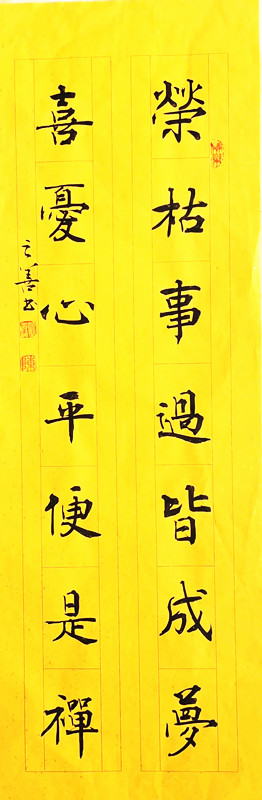 榮枯事過皆成夢
喜憂心平便是禪
之善书